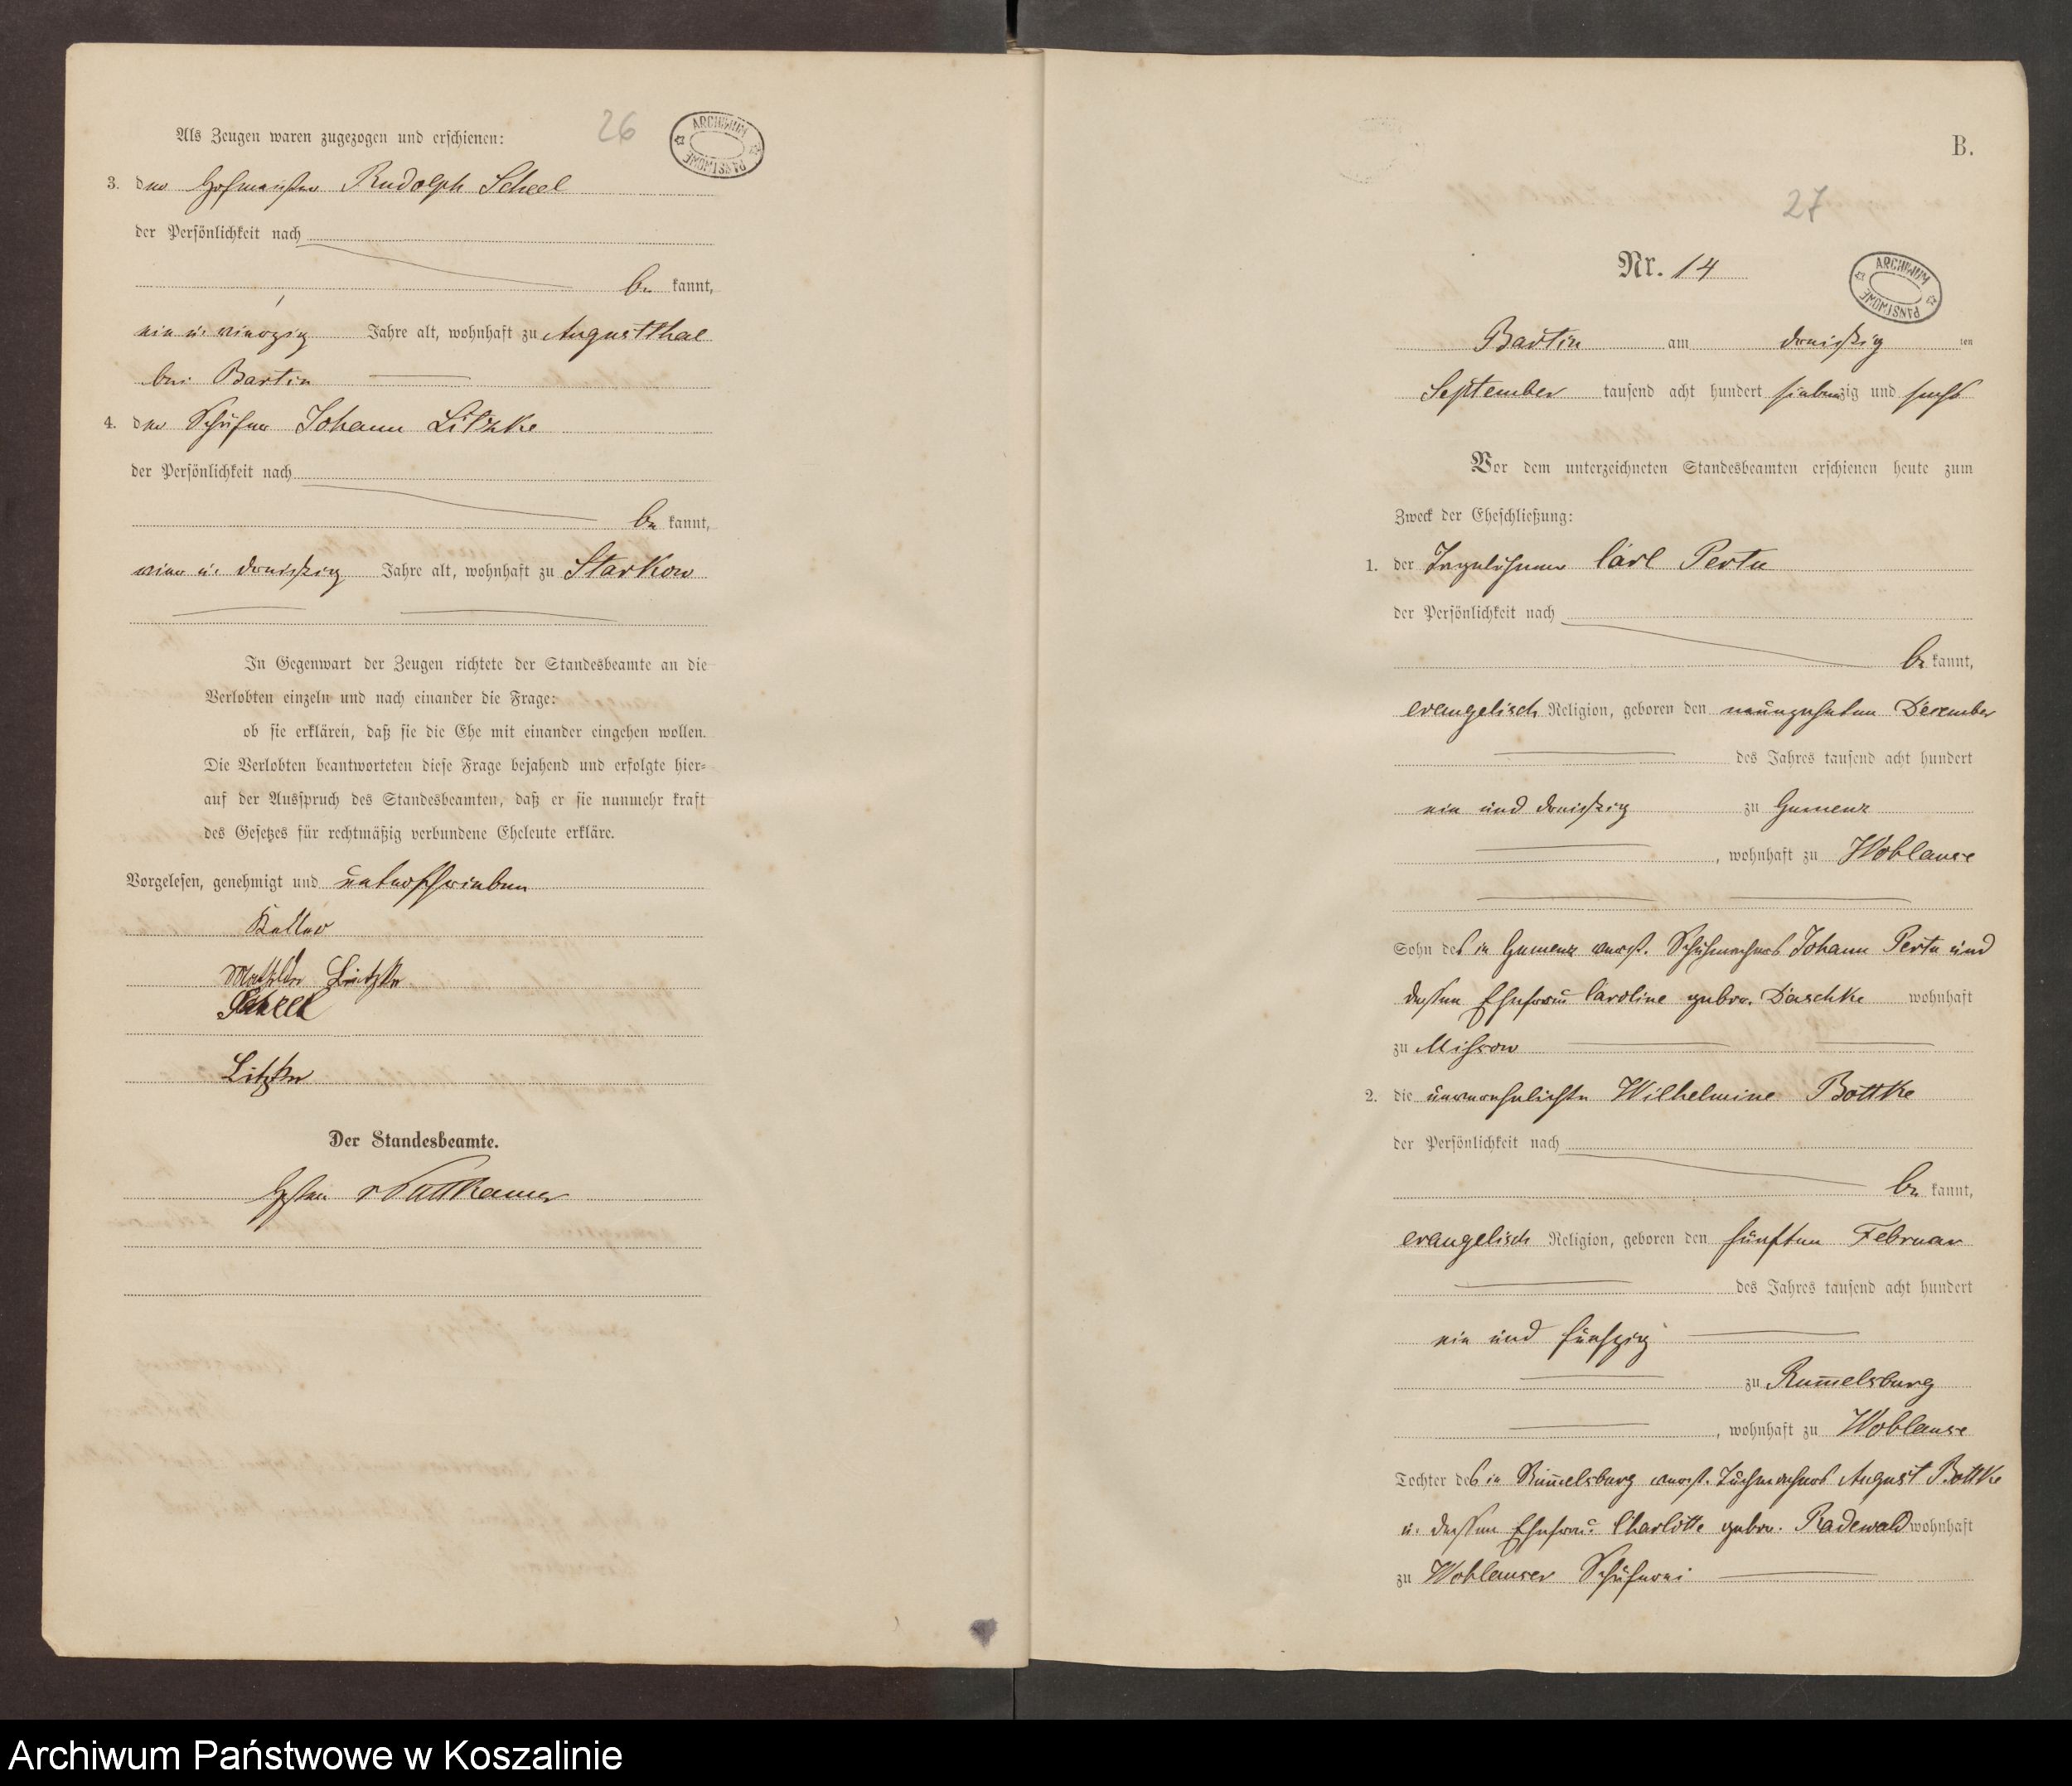 26
ARCHIWUM PAŃSTWOWE
Als Zeugen waren zugezogen und erschienen:
3. der Hofmeister Rudolph Scheel
der Persönlichkeit nach
be kannt,
ein u. vierzig Jahre alt, wohnhaft zu Augustthal
bei Bartin
4. der Schäfer Johann Litzke
der Persönlichkeit nach
be kannt,
vier u. dreißig Jahre alt, wohnhaft zu Starkow
In Gegenwart der Zeugen richtete der Standesbeamte an die
Verlobten einzeln und nach einander die Frage:
ob sie erklären, daß sie die Ehe mit einander eingehen wollen.
Die Verlobten beantworteten diese Frage bejahend und erfolgte hier-
auf der Ausspruch des Standesbeamten, daß er sie nunmehr kraft
des Gesetzes für rechtmäßig verbundene Eheleute erkläre.
Vorgelesen, genehmigt und unterschrieben
Mathilde Litzke
Scheel
Litzke
Der Standesbeamte.
v Puttkamer
B.
27
Nr. 14
ARCHIWUM PAŃSTWOWE
Bartin am dreißig ten
September tausend acht hundert siebenzig und sechs
Vor dem unterzeichneten Standesbeamten erschienen heute zum
Zweck der Eheschließung:
1. der Tagelöhner Carl Perta
der Persönlichkeit nach
be kannt,
evangelisch Religion, geboren den neunzehnten Dezember
des Jahres tausend acht hundert
ein und dreißig zu Gumenz
, wohnhaft zu Woblanse
Sohn des in Gumenz verst. Schuhmachers Johann Perta und
dessen Ehefrau Caroline gebor. Daschke wohnhaft
zu Missow
2. die unverehelichte Wilhelmine Bottke
der Persönlichkeit nach
be kannt,
evangelisch Religion, geboren den fünften Februar
des Jahres tausend acht hundert
ein und fünfzig
zu Rummelsburg
, wohnhaft zu Woblanse
Tochter des in Rummelsburg verst. Tuchmachers August Bottke
u. dessen Ehefrau Charlotte gebor. Radewald wohnhaft
zu Woblanser Schäferei
Archiwum Państwowe w Koszalinie